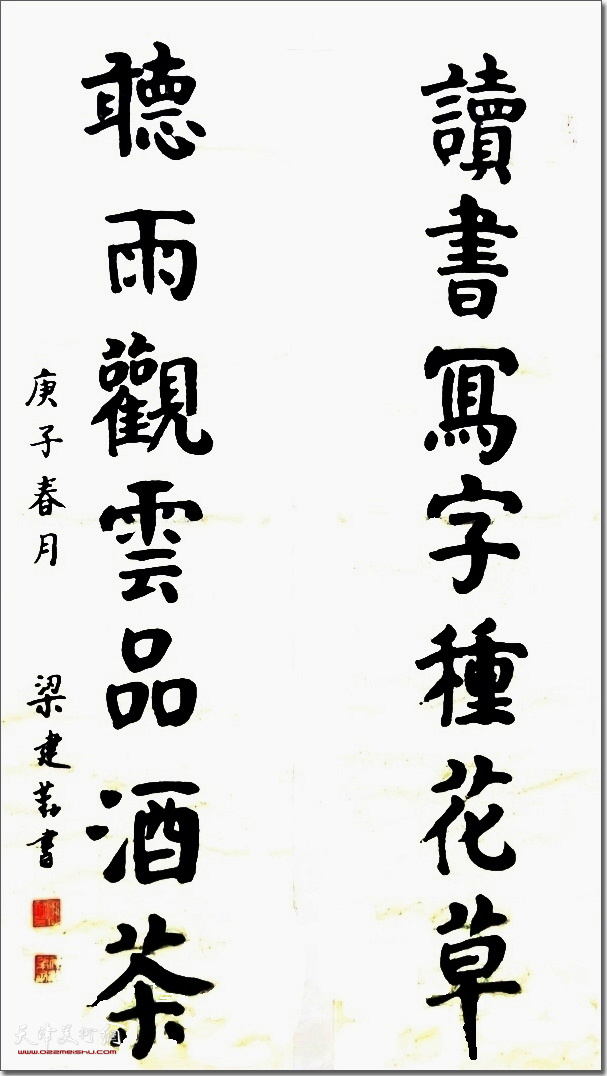 讀書寫字種花草
聽雨觀雲品酒茶
庚子春月
梁建勳書
天津美術網
www.022meishu.com